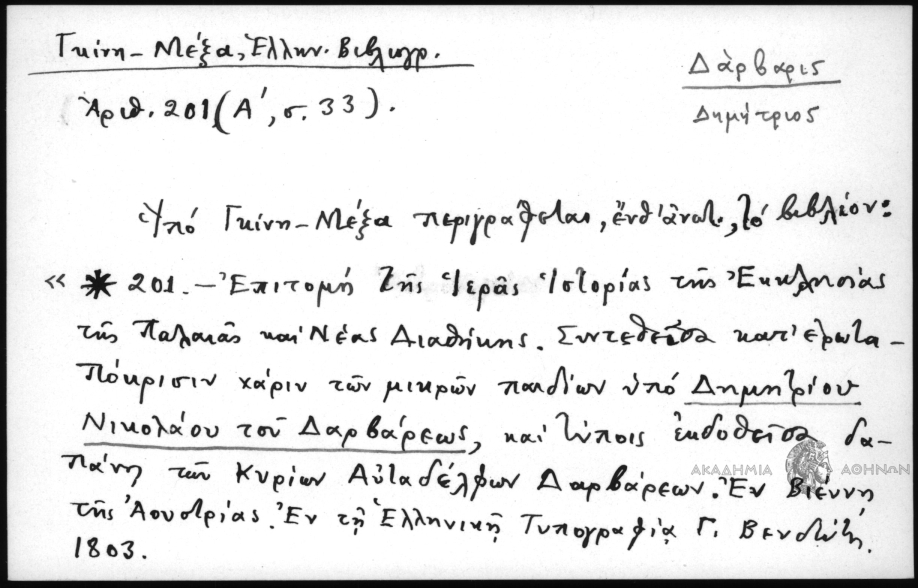 Γκίνη - Μέξα, Ἑλλην. Βιβλιογρ.
Δάρβαρις
Ἀριθ. 201 (Α', σ. 33).
Δημήτριος
Ὑπό Γκίνη - Μέξα περιγράφεται, ἔνθ' ἀνωτ., τό βιβλίον:
« * 201. - Ἐπιτομή τῆς Ἱερᾶς Ἱστορίας τῆς Ἐκκλησίας
τῆς Παλαιᾶς καί Νέας Διαθήκης. Συντεθεῖσα κατ' ἐρωτα-
πόκρισιν χάριν τῶν μικρῶν παιδίων ὑπό Δημητρίου
Νικολάου τοῦ Δαρβάρεως, καί τύποις ἐκδοθεῖσα δα-
πάνῃ τῶν Κυρίων Αὐταδέλφων Δαρβάρεων. Ἐν Βιέννῃ
ΑΚΑΔΗΜΙΑ ΑΘΗΝΩΝ
τῆς Ἀουστρίας. Ἐν τῇ Ἑλληνικῇ Τυπογραφίᾳ Γ. Βενδώτῃ.
1803.